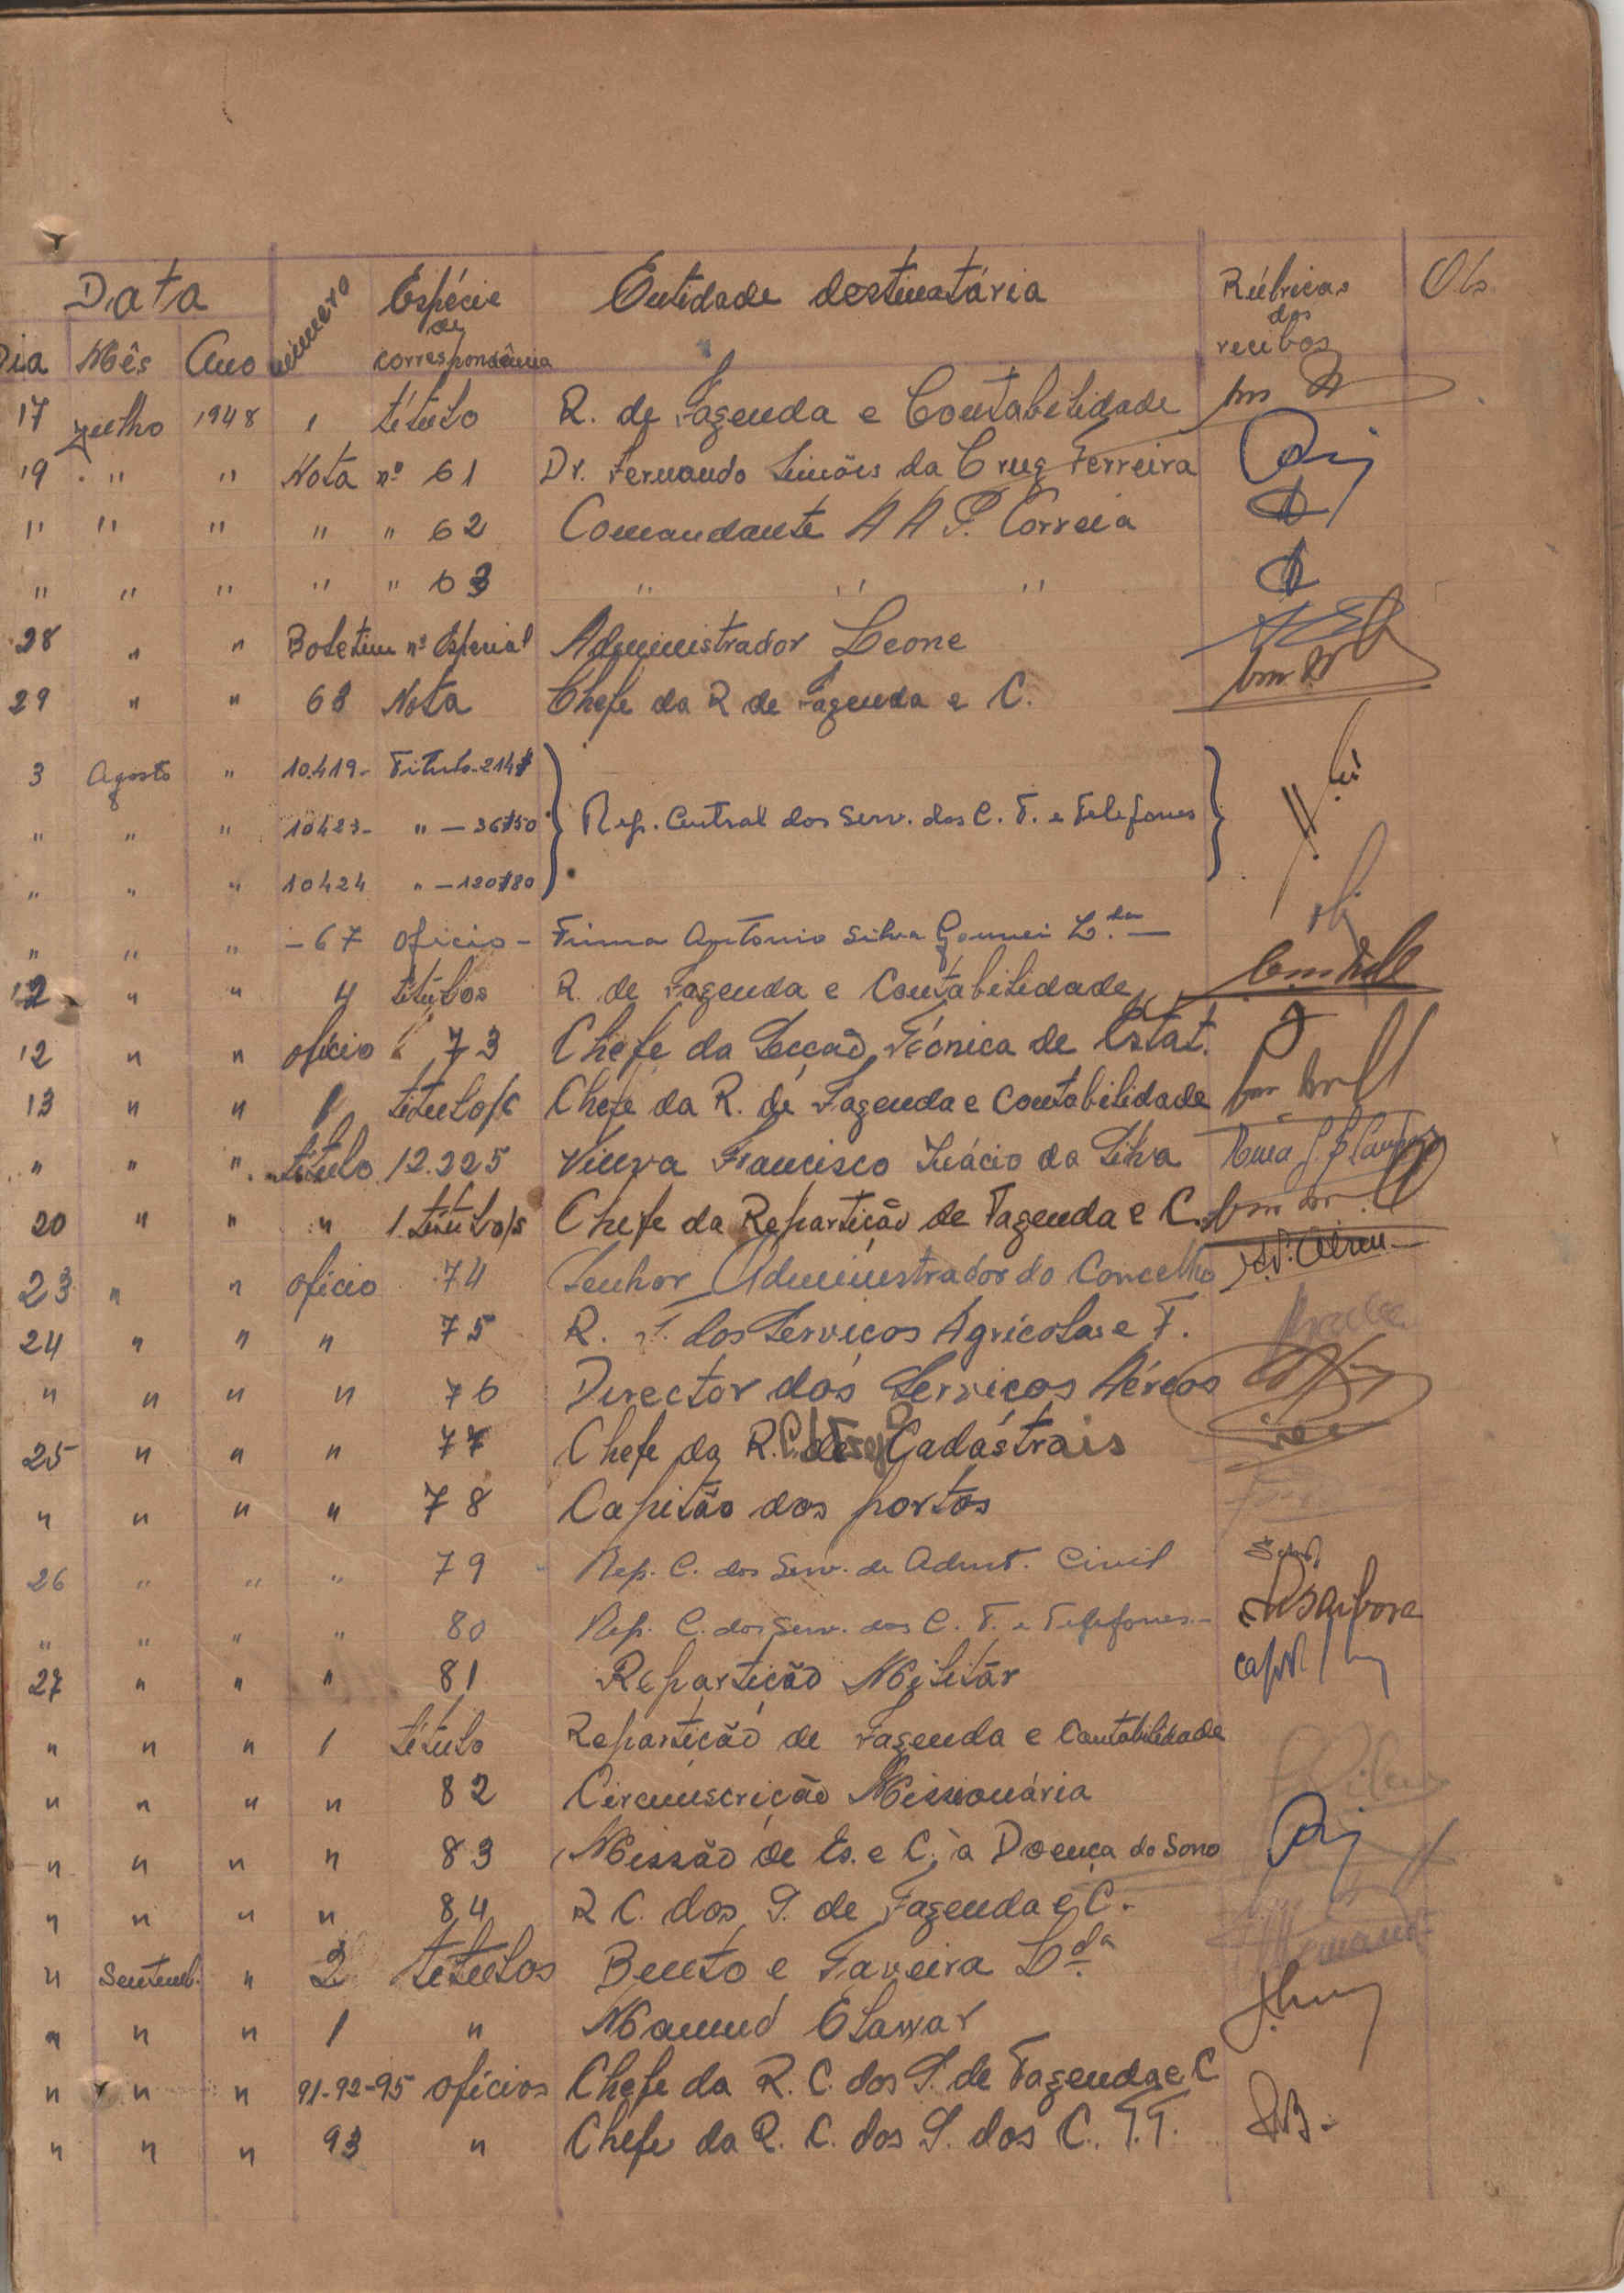 Data número Espécie de correspondência Entidade destinatária Rúbricas dos recibos Obs
Dia Mês Ano
17 Julho 1948 1 título R. de Fazenda e Contabilidade
19 " " Nota nº 61 Dr. Fernando Simões da Cruz Ferreira
" " " " " 62 Comandante A A P. Correia
" " " " " 63 " " "
28 " " Boletim nº Especial Administrador Leone
29 " " 68 Nota Chefe da R de Fazenda e C.
3 Agosto " 10.419- Titulo-214$
" " " 10423- " -36$50 Rep. Central dos Serv. dos C. T. e Telefones
" " " 10424 " -120$80
" " " -67 oficio- Firma António Silva Gouveia L.da
12 " " 4 títulos R. de Fazenda e Contabilidade
12 " " ofício 73 Chefe da Secção Técnica de Estat.
13 " " 1 título/s Chefe da R. de Fazenda e Contabilidade
" " " título 12.225 Viuva Francisco Inácio da Silva
20 " " " 1 título/s Chefe da Repartição de Fazenda e C.
23 " " ofício 74 Senhor Administrador do Concelho
24 " " " 75 R. T. dos Serviços Agrícolas e F.
" " " " 76 Director dos Serviços Aéreos
25 " " " 77 Chefe da R. Cadástrais
" " " " 78 Capitão dos portos
26 " " " 79 Rep. C. dos Serv. de Admt. Civil
" " " " 80 Rep. C. dos Serv. dos C. T. e Telefones-
27 " " " 81 Repartição Militar
" " " 1 título Repartição de Fazenda e Contabilidade
" " " " 82 Circunscrição Missionária
" " " " 83 Missão de Es. e C. à Doença do Sono
" " " " 84 R C. dos S. de Fazenda e C.
" Setemb. " 2 títulos Bento e Taveira L.da
" " " 1 " Mamud Elawar
" " " 91-92-95 ofícios Chefe da R. C. dos S. de Fazenda e C
" " " 93 " Chefe da R. C. dos S. dos C. T.T.